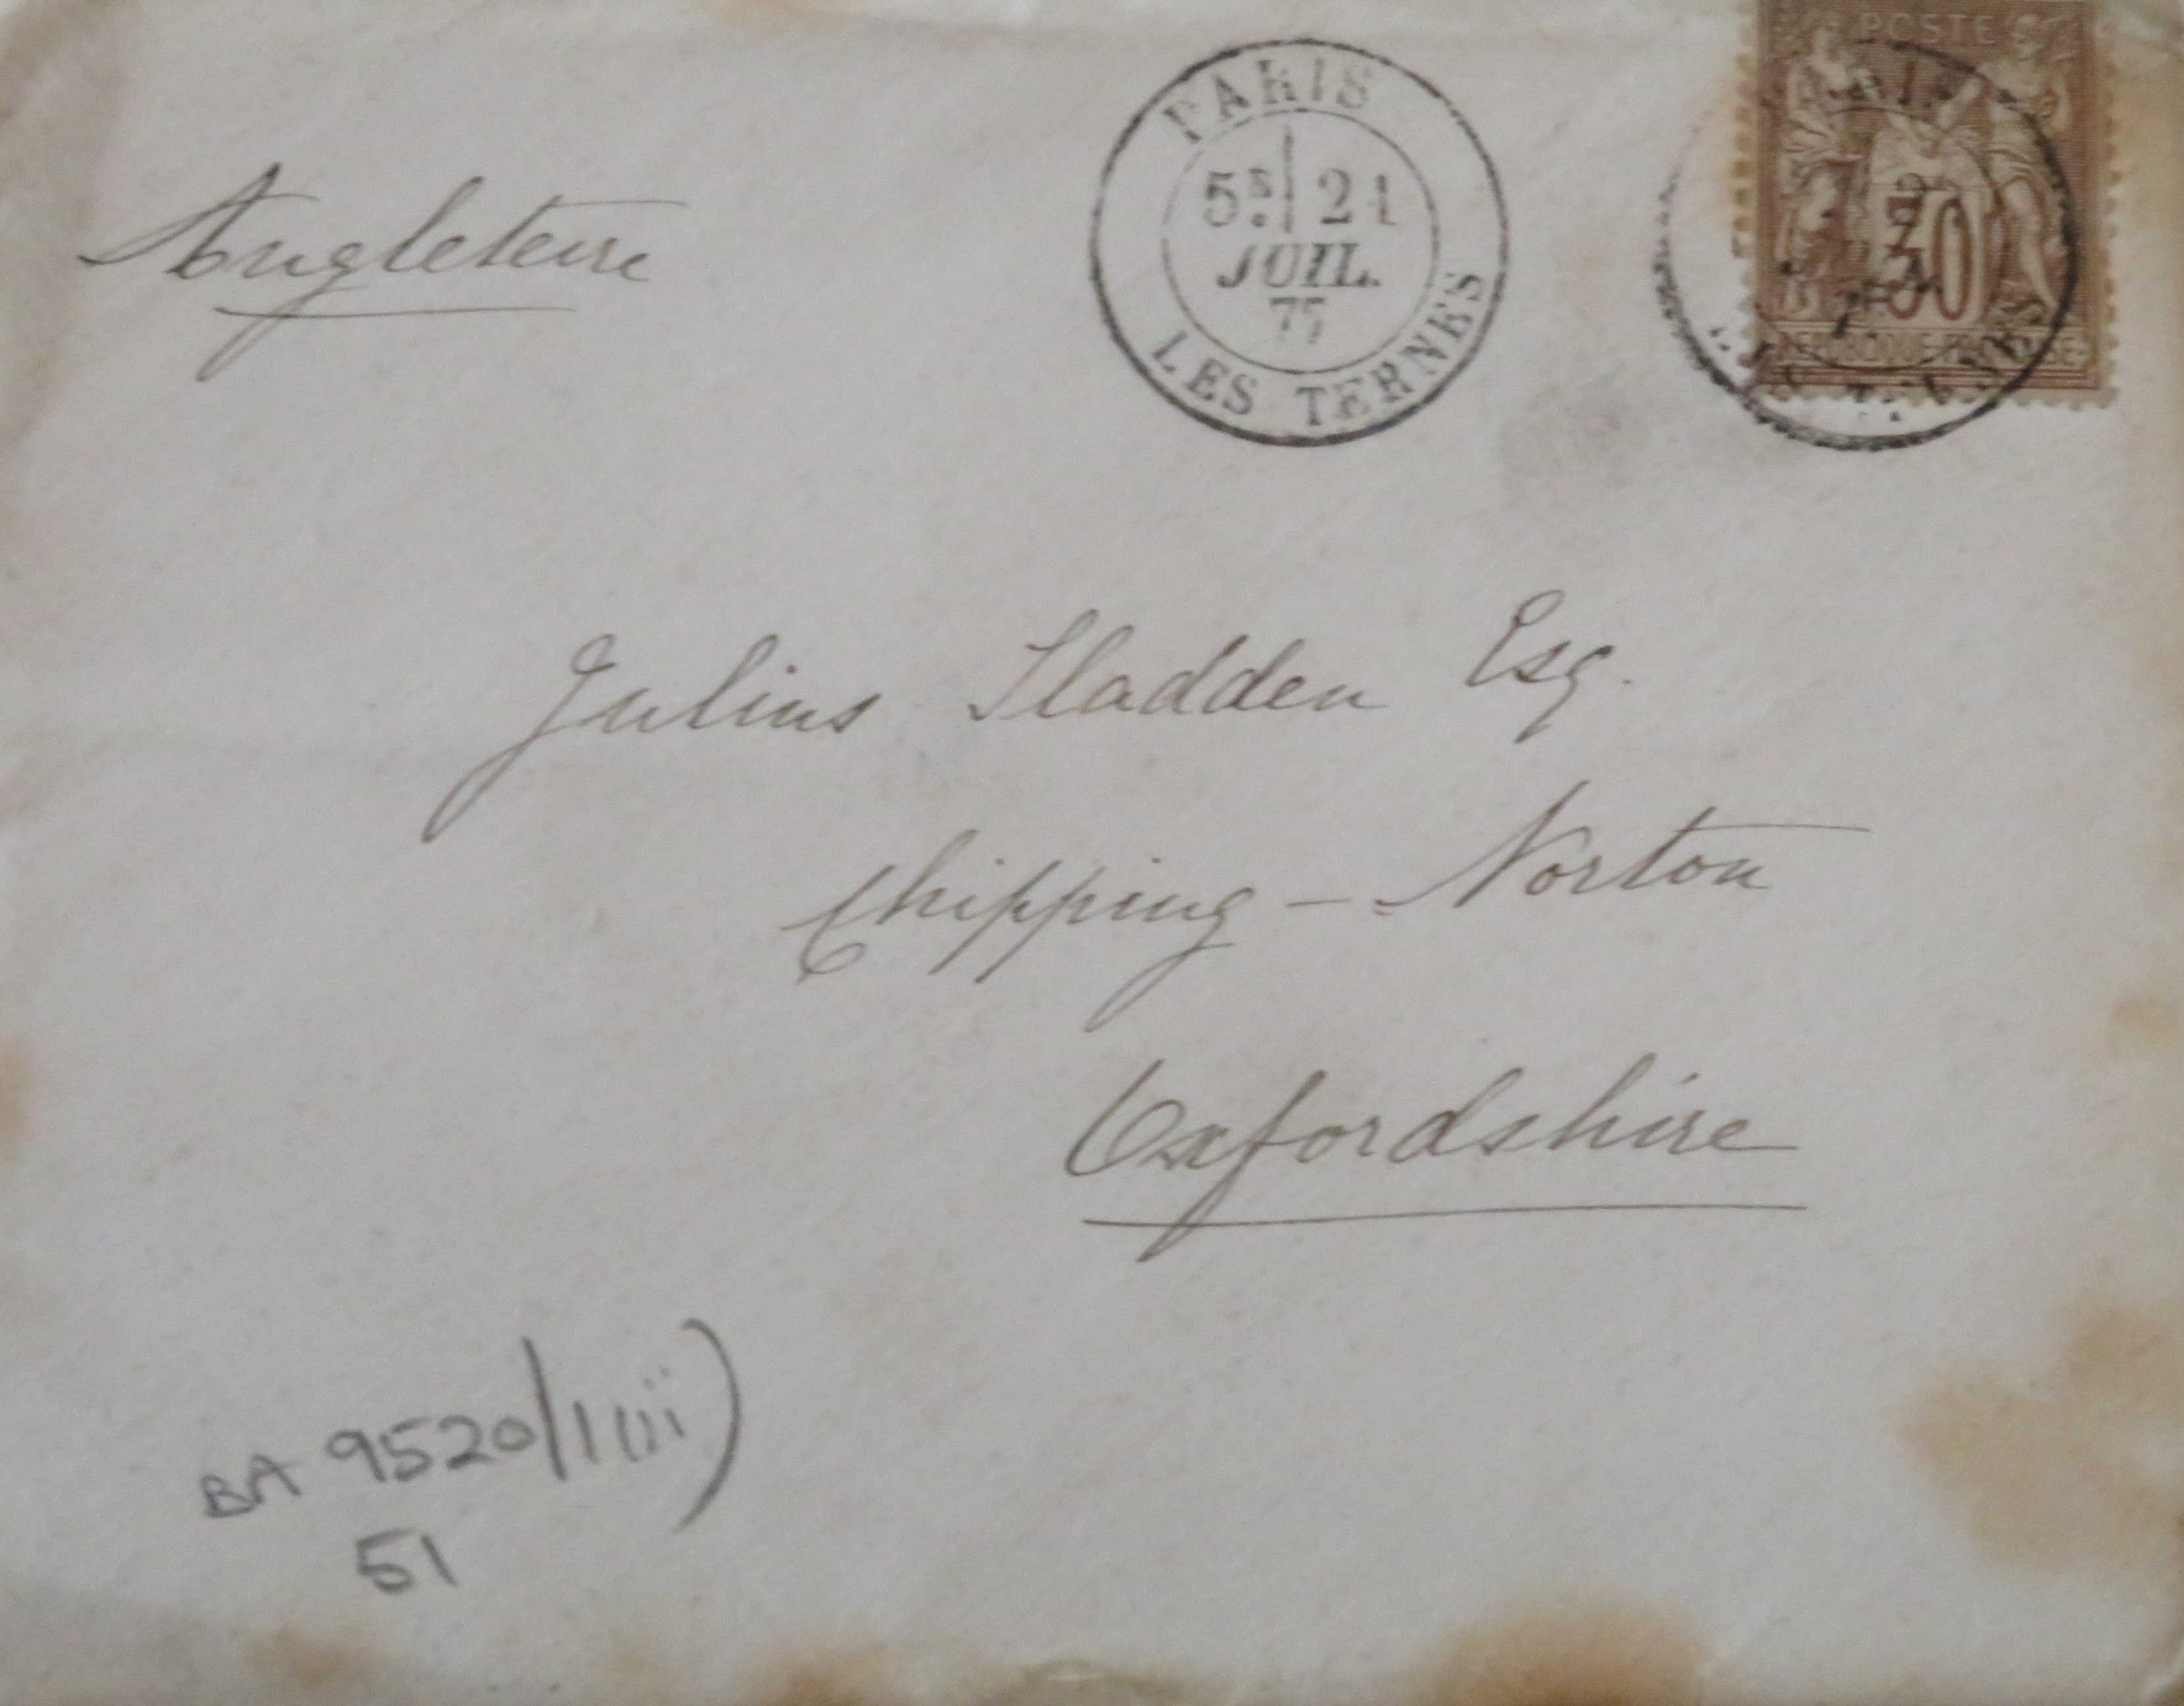 POSTE
PARIS
5ᴱ 21
JUIL.
77
LES TERNES
30
Angleterre
Julius Sladden Esq.
Chipping - Norton
Oxfordshire
BA 9520/1(ii)
51